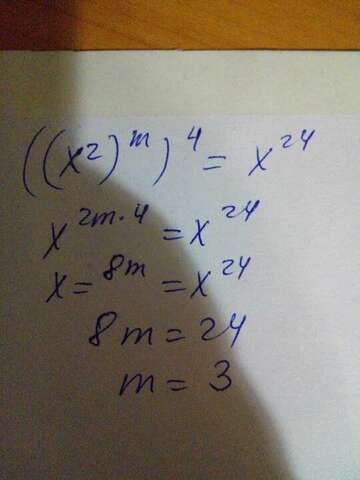 ((x²)ᵐ)⁴ = x²⁴
x²ᵐ·⁴ = x²⁴
x = ⁸ᵐ = x²⁴
8m = 24
m = 3